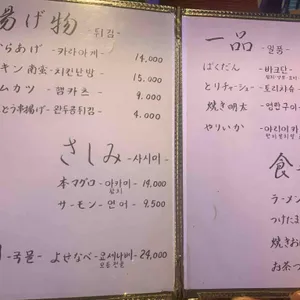 揚げ物 - 튀김 -
らあげ - 카라아게 - 14,000
キン南蛮 - 치킨난방 - 15,000
ムカツ - 햄카츠 - 9,000
とう串揚げ - 완두콩튀김 - 4,000
さしみ - 사시미 -
本マグロ - 아카미 - 19,000
サーモン - 연어 - 9,500
- 국물 - よせなべ - 쿄세나베 - 24,000
모듬전골
一品 - 일품 -
ばくだん - 바쿠단 -
とりチャーシュー - 토리차슈
焼き明太 - 명란구이
やりいか - 야리이카
ラーメン
つけたま
焼きお
お茶づ